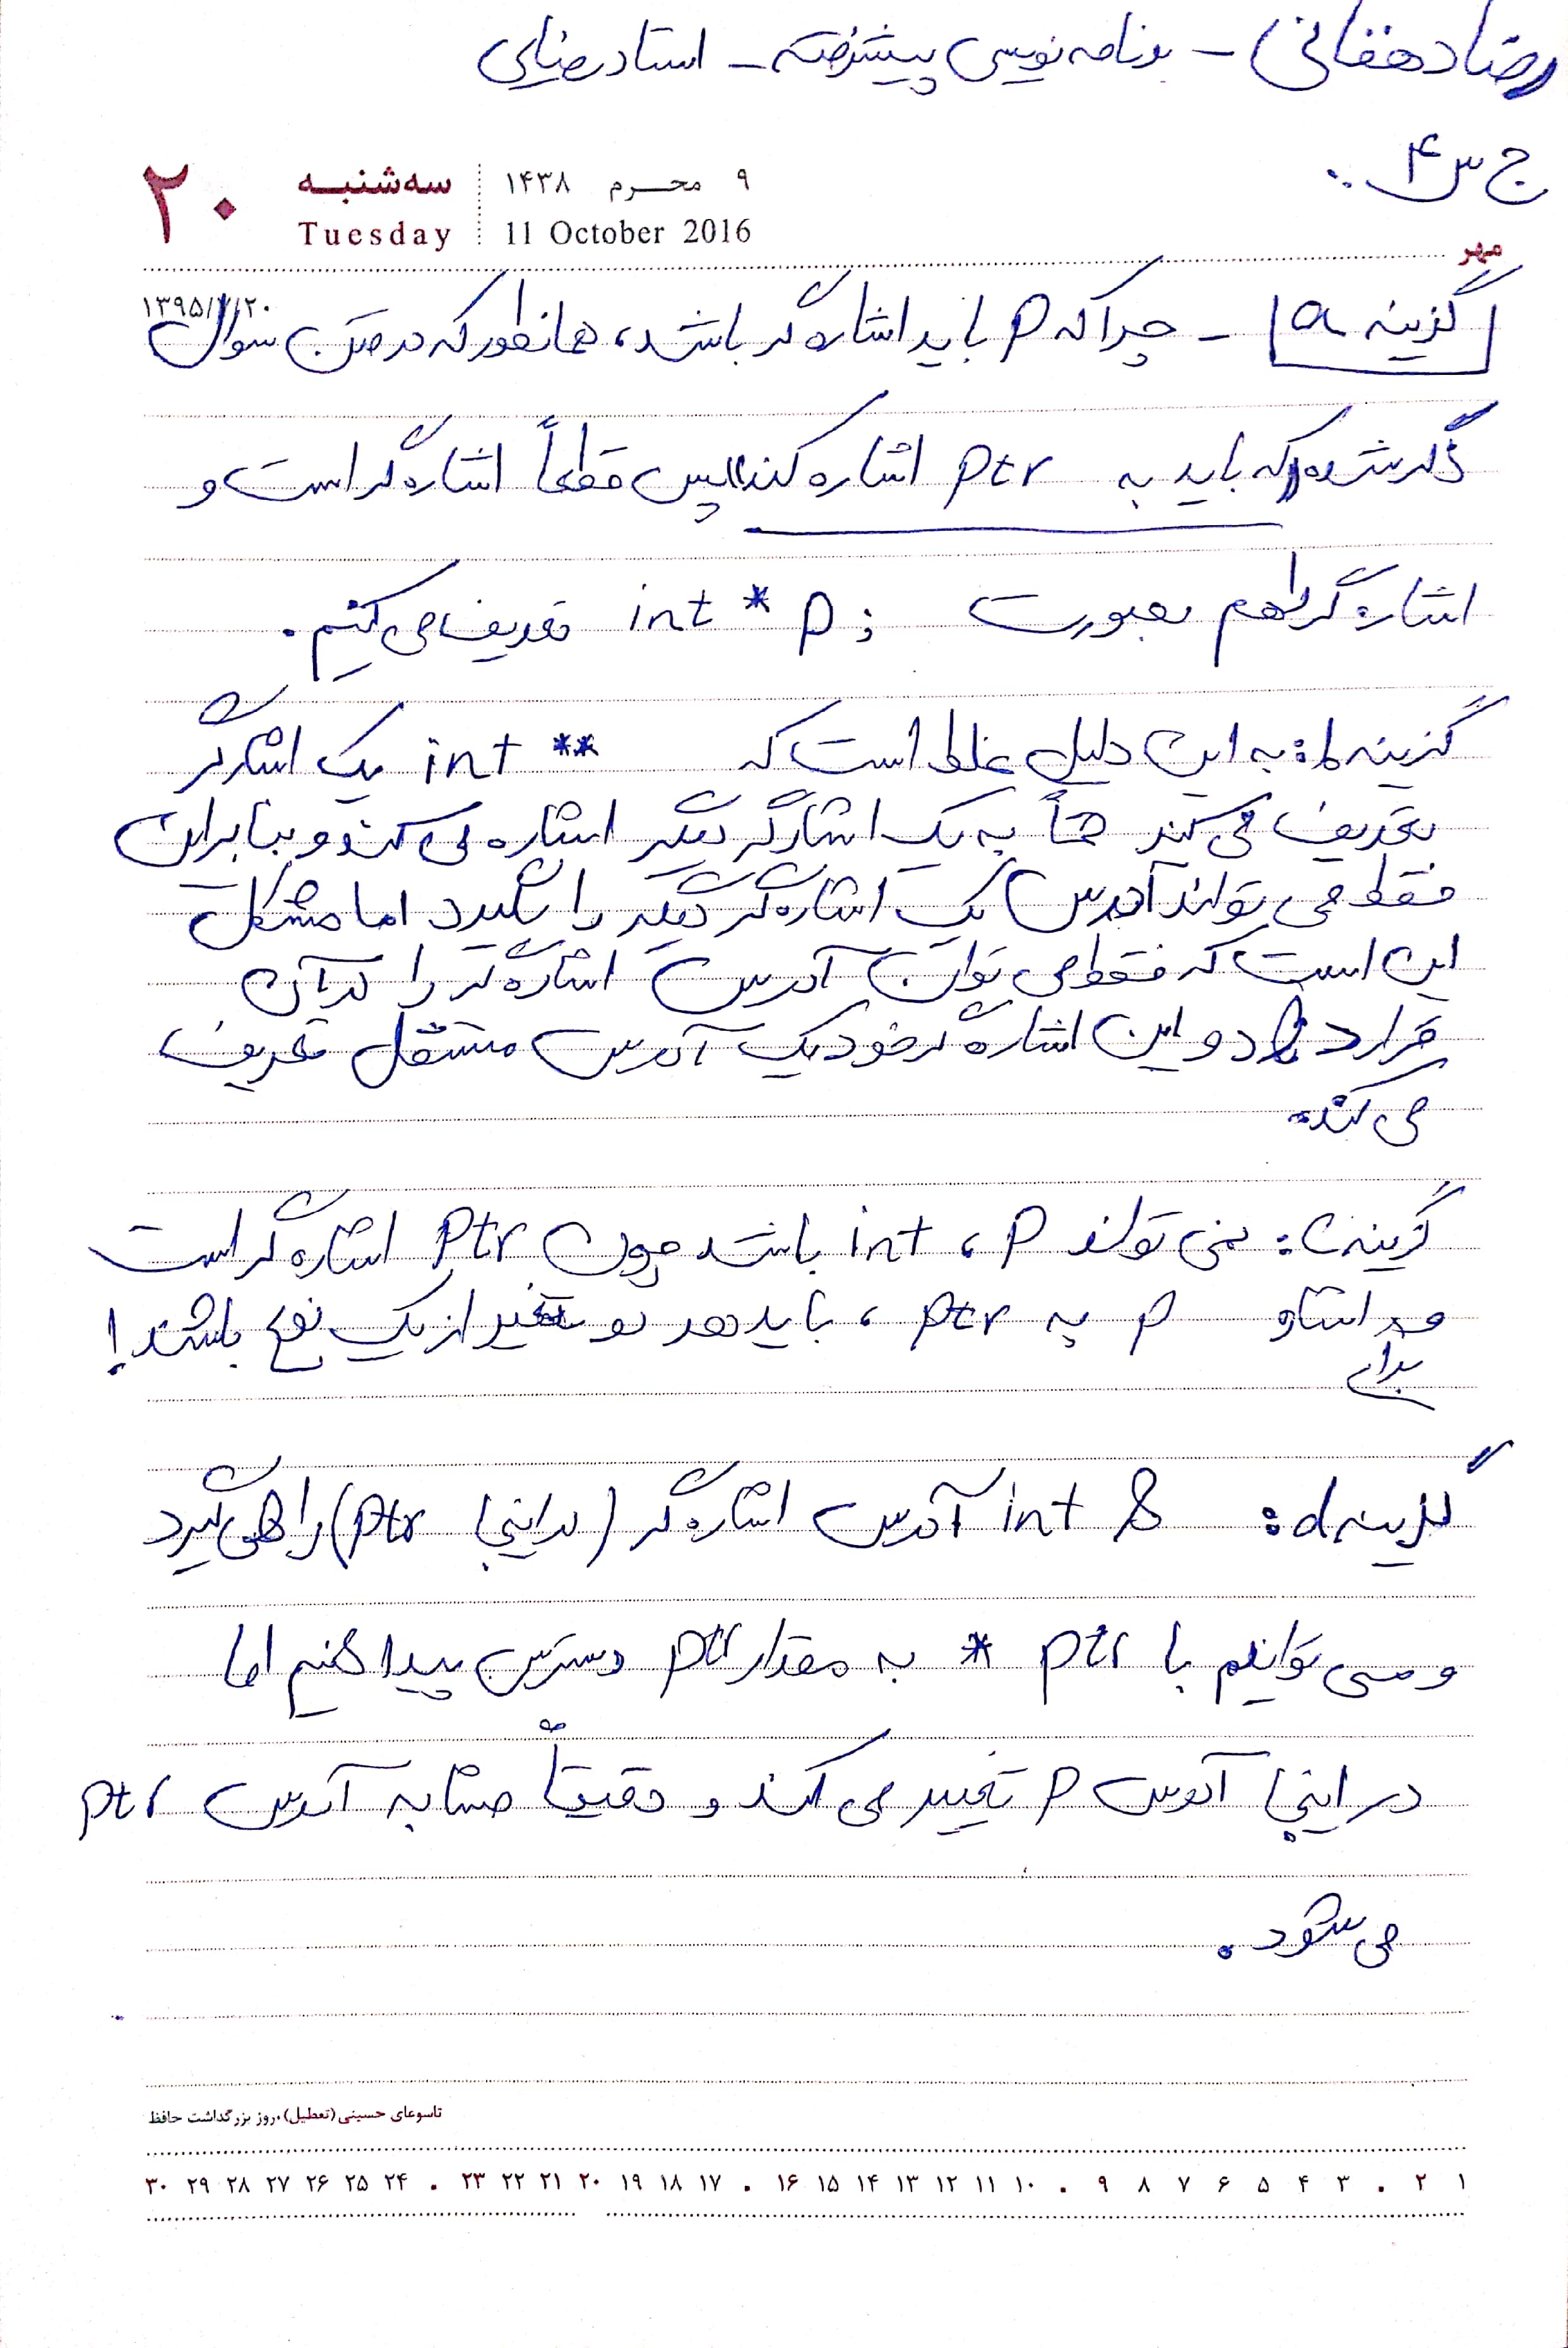 رضا دهقانی - برنامه نویسی پیشرفته - استاد رضایی
ج س ۴..
۲۰ سه‌شنبه ۹ محرم ۱۴۳۸
Tuesday 11 October 2016
مهر
۱۳۹۵/۷/۲۰
گزینه a - چرا که p باید اشاره گر باشد، همانطور که در متن سوال
ذکر شده که باید به ptr اشاره کند پس قطعاً اشاره گر است و
اشاره گر را هم بصورت int * p; تعریف می کنیم.
گزینه b: به این دلیل غلط است که int ** یک اشارگر
تعریف می کند که به یک اشارگر دیگر اشاره می کند و بنابراین
فقط می تواند آدرس یک اشاره گر دیگر را بگیرد اما مشکل
این است که فقط می توان آدرس اشاره گر را در آن
قرار داد و این اشاره گر خود یک آدرس مستقل تعریف
می کند.
گزینه c: نمی تواند p، int باشد چون ptr اشاره گر است
و برای اشاره p به ptr، باید هر دو متغیر از یک نوع باشند!
گزینه d: int & آدرس اشاره گر (در اینجا ptr) را می گیرد
و می توانیم با * ptr به مقدار ptr دسترسی پیدا کنیم اما
در اینجا آدرس p تغییر می کند و دقیقاً مشابه آدرس ptr
می شود.
تاسوعای حسینی (تعطیل)، روز بزرگداشت حافظ
۱ ۲ . ۳ ۴ ۵ ۶ ۷ ۸ ۹ . ۱۰ ۱۱ ۱۲ ۱۳ ۱۴ ۱۵ ۱۶ . ۱۷ ۱۸ ۱۹ ۲۰ ۲۱ ۲۲ ۲۳ . ۲۴ ۲۵ ۲۶ ۲۷ ۲۸ ۲۹ ۳۰